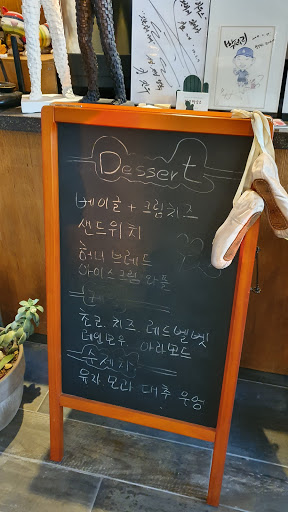 Dessert
베이글 + 크림치즈
샌드위치
허니 브레드
아이스크림 와플
초코. 치즈. 레드벨벳
티라모우. 아라모드
수제차
유자 모과 대추 우엉